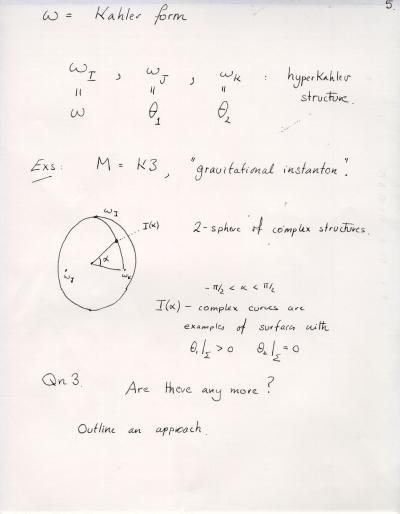 5.
ω = Kahler form
ω_I , ω_J , ω_K : hyperKahler
structure.
॥ ॥ ॥
ω θ_1 θ_2
Exs: M = K3, "gravitational instanton".
ω_I
I(α)
2-sphere of complex structures.
α
ω_J ω_K
-π/2 < α < π/2
I(α) - complex curves are
examples of surfaces with
θ_1|_Σ > 0 θ_2|_Σ = 0
Qn 3. Are there any more?
Outline an approach.